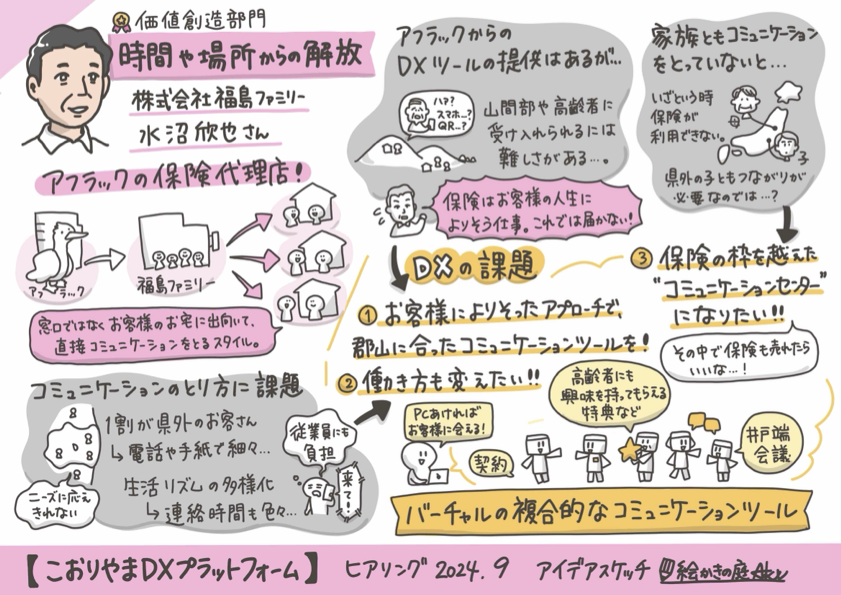 価値創造部門
時間や場所からの解放
株式会社福島ファミリー
水沼欣也さん
アフラックの保険代理店!
アフラック
福島ファミリー
窓口ではなくお客様のお宅に出向いて、
直接コミュニケーションをとるスタイル。
コミュニケーションのとり方に課題
1割が県外のお客さん
↳電話や手紙で細々…
生活リズムの多様化
↳連絡時間も色々…
ニーズに応え
きれない
従業員にも
負担
来て!
アフラックからの
DXツールの提供はあるが…
ハァ?
スマホ…?
QR…?
山間部や高齢者に
受け入れられるには
難しさがある…。
保険はお客様の人生に
よりそう仕事。これでは届かない!
家族ともコミュニケーション
をとっていないと…
いざという時
保険が
利用できない。
子
県外の子ともつながりが
必要なのでは…?
DXの課題
① お客様によりそったアプローチで、
郡山に合ったコミュニケーションツールを!
② 働き方も変えたい!!
③ 保険の枠を越えた
"コミュニケーションセンター"
になりたい!!
その中で保険も売れたら
いいな…!
PCあければ
お客様に会える!
契約
高齢者にも
興味を持ってもらえる
特典など
井戸端
会議
バーチャルの複合的なコミュニケーションツール
【こおりやまDXプラットフォーム】 ヒアリング 2024.9 アイデアスケッチ 絵かきの庭